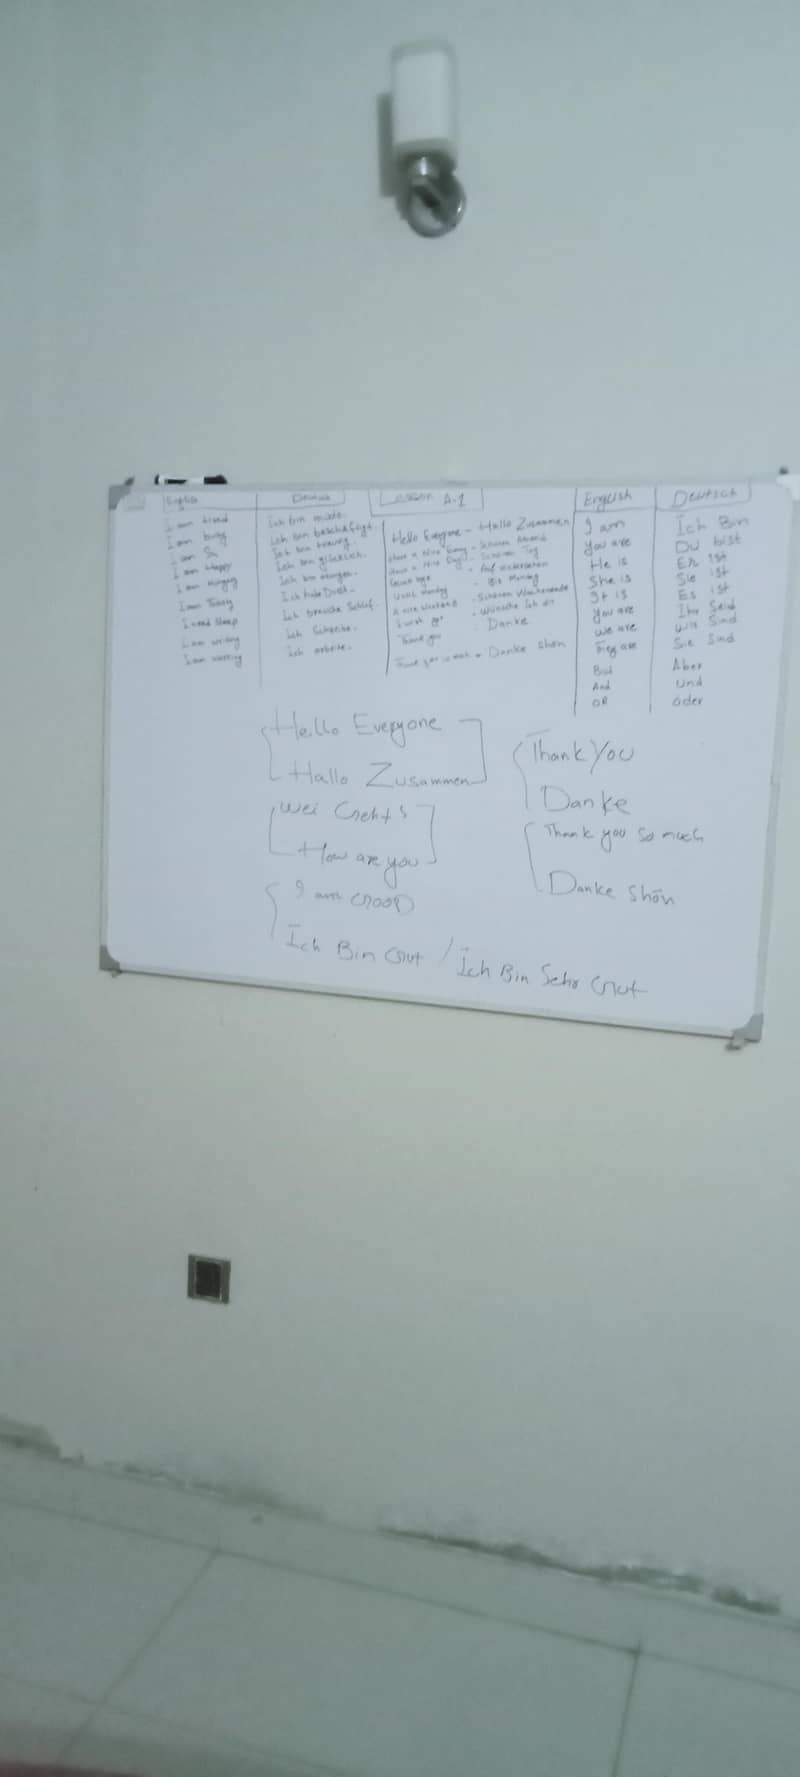 English
Deutsch
I am tired
Ich bin müde.
I am busy
Ich bin beschäftigt.
I am
Ich bin traurig.
I am Happy
Ich bin glücklich.
I am Hungry
Ich bin hungrig.
I am
Ich habe Durst.
I need Sleep
Ich brauche Schlaf.
I am writing
Ich Schreibe.
I am working
Ich arbeite.
Lesson A-1
Hello Everyone - Hallo Zusammen
Have a Nice - Schönen Abend
Have a Nice Day - Schönen Tag
Good bye - Auf wiedersehen
Until Monday - Bis Montag
A nice Weekend - Schönen Wochenende
I wish - Wünsche Ich dir
Thank you - Danke
Thank you so much - Danke shön
English
Deutsch
I am
Ich Bin
You are
Du bist
He is
Er ist
She is
Sie ist
It is
Es ist
You are
Ihr Seid
We are
Wir Sind
They are
Sie Sind
But
Aber
And
Und
OR
oder
Hello Everyone
Hallo Zusammen
Wei Geht's
How are you
I am GOOD
Ich Bin Gut / Ich Bin Sehr Gut
Thank You
Danke
Thank you so much
Danke shön